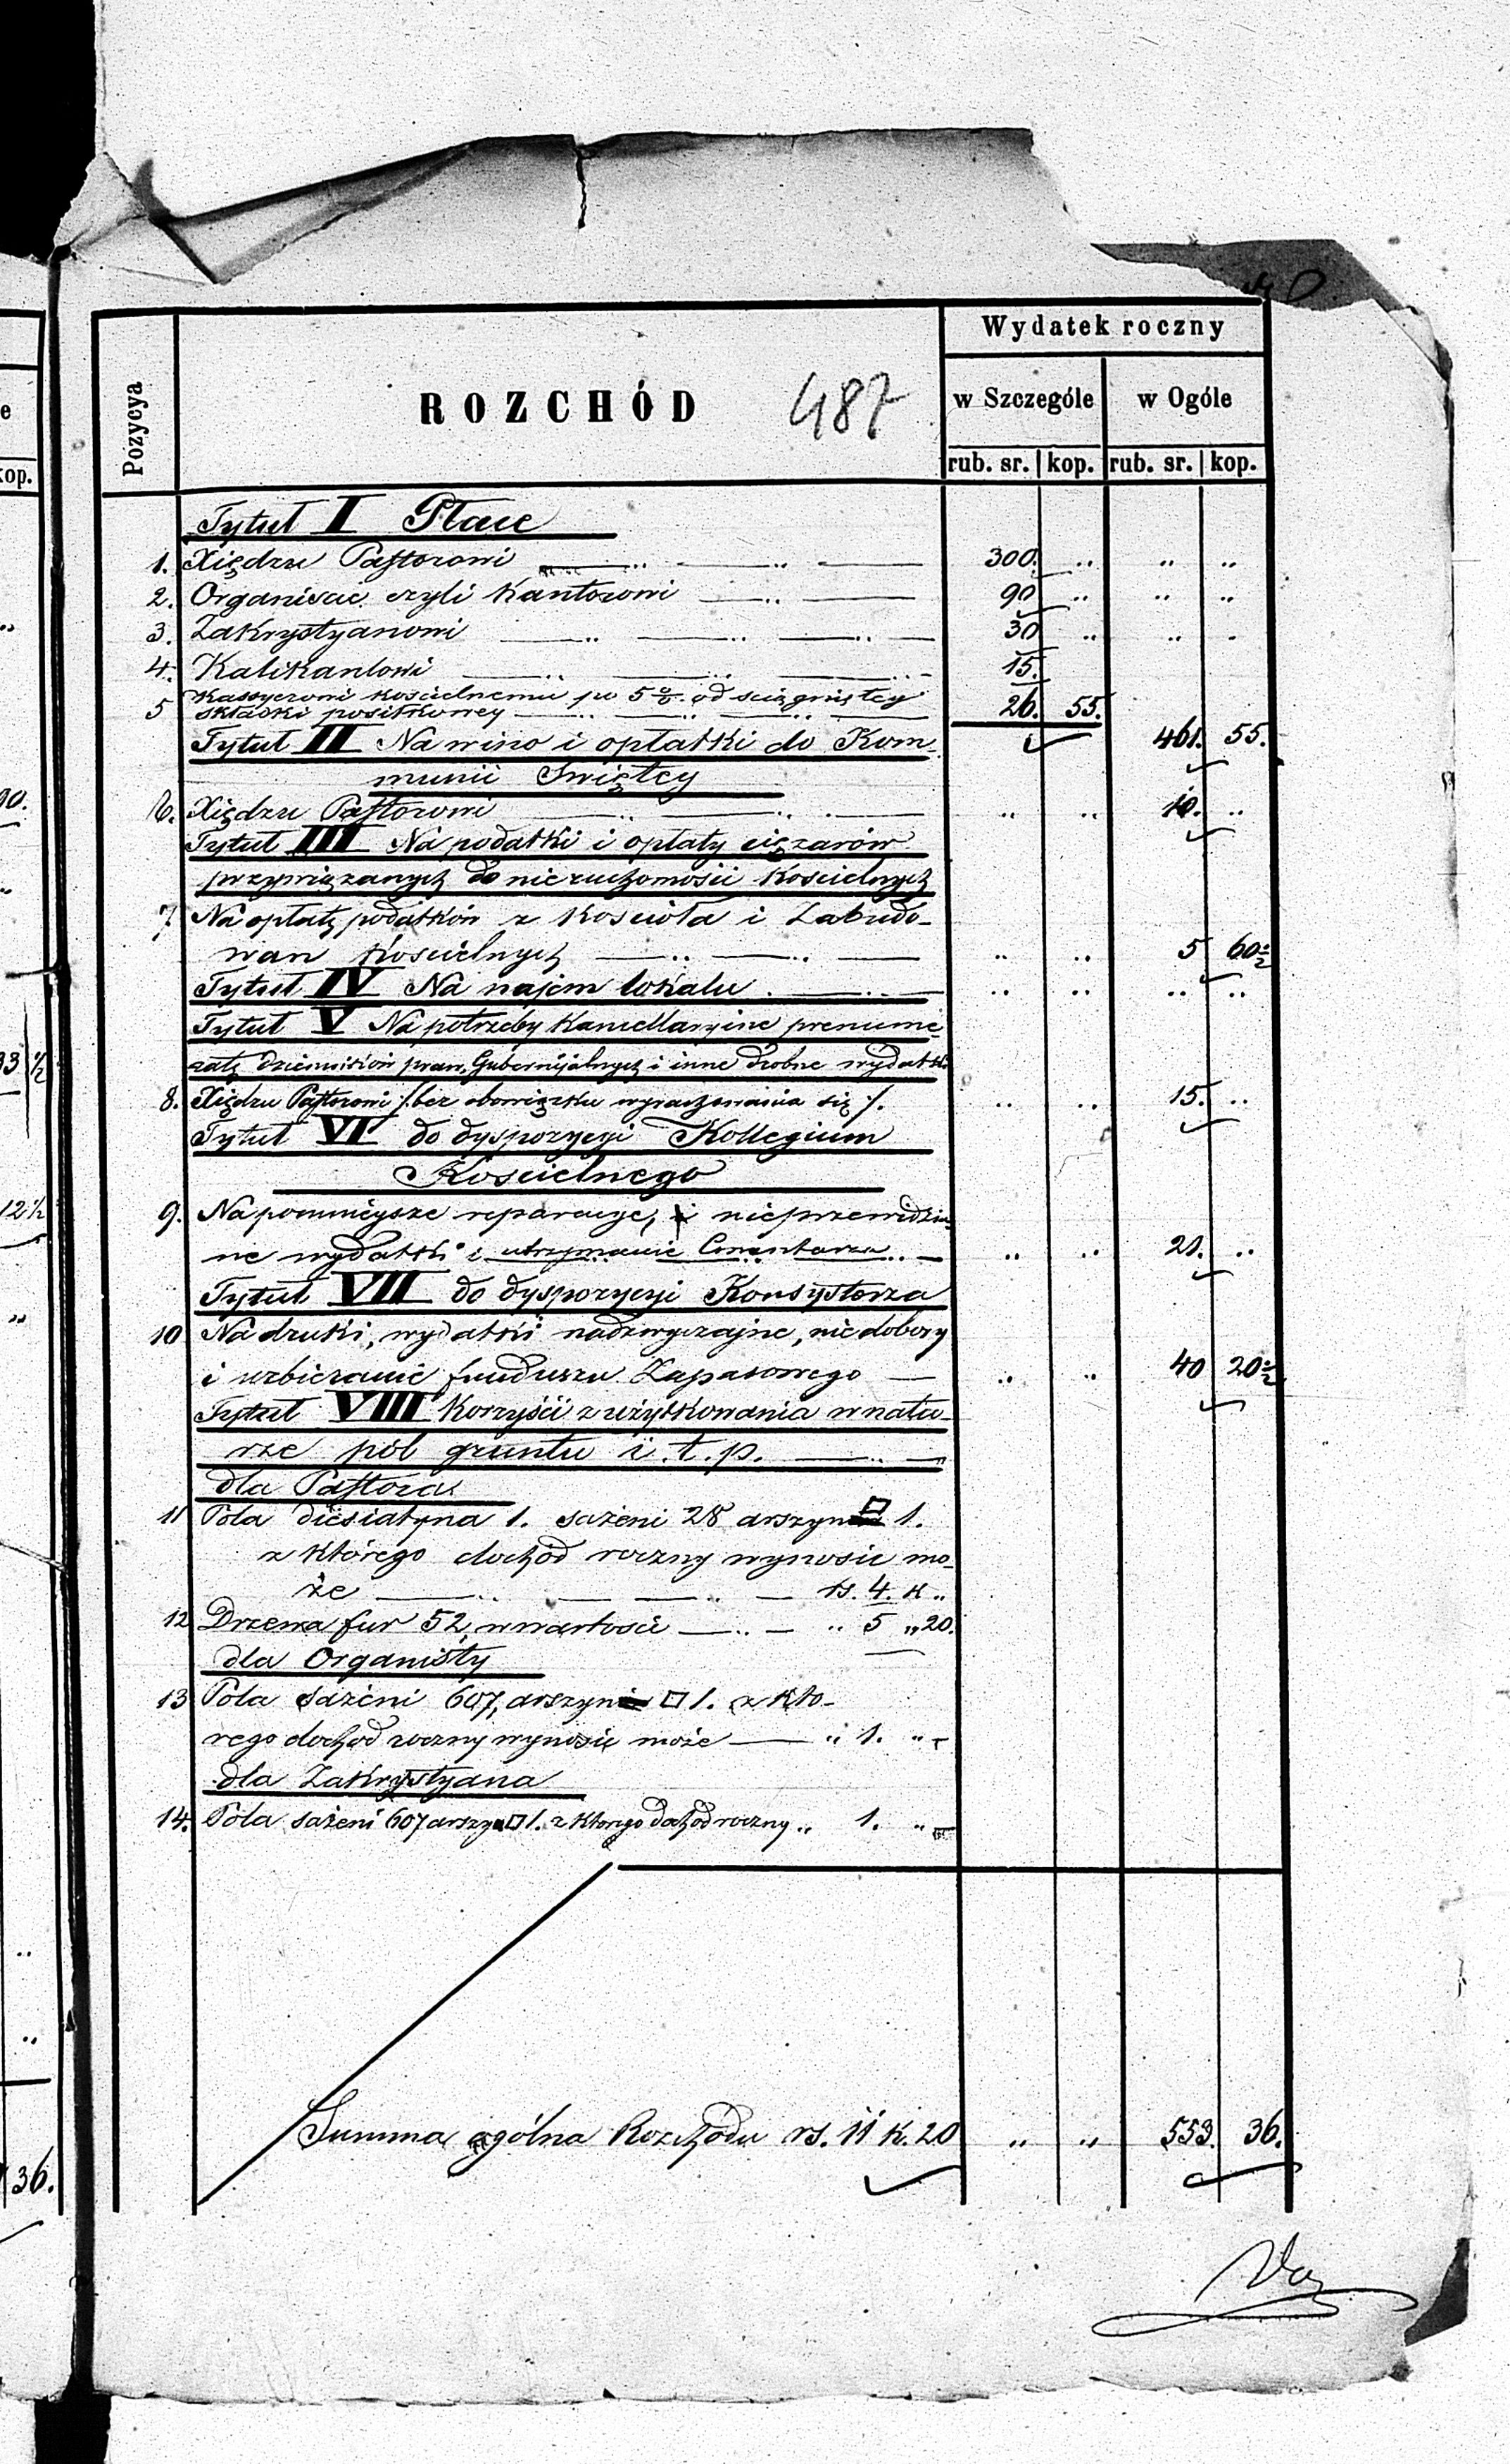 Wydatek roczny
Pozycya
ROZCHÓD
487
w Szczególe
w Ogóle
rub. sr. kop. rub. sr. kop.
Tytuł I Płace
1. Xiędzu Pastorowi 300. " " "
2. Organiście czyli Kantorowi 90 " " "
3. Zakrystyanowi 30 " " "
4. Kalikantowi 15.
Kassyerowi kościelnemu po 5% od ściągniętey
5 składki posiłkowey 26. 55.
Tytuł II Na wino i opłatki do Kom- 461. 55.
munii Świętey
6. Xiędzu Pastorowi " " 10. "
Tytuł III Na podatki i opłaty ciężarów
przywiązanych do nieruchomości Kościelnych
7 Na opłatę podatków z Kościoła i Zabudo-
wań Kościelnych " " 5 60½
Tytuł IV Na najem lokalu " " " "
Tytuł V Na potrzeby Kancellaryine prenume-
ratę Dzienników praw, Gubernijalnych i inne drobne wydatki
8. Xiędzu Pastorowi /. bez obowiązku wyrachowania się /. " " 15. "
Tytuł VI do dyspozycyi Kollegium
Kościelnego
9. Na pomnieysze reparacye, nieprzewidzia-
ne wydatki i utrzymanie Cmentarza " " 21. "
Tytuł VII do dyspozycyi Konsystorza
10 Na druki, wydatki nadzwyczajne, niedobory
i uzbieranie funduszu Zapasowego " " 40 20½
Tytuł VIII Korzyści z użytkowania w natu-
rze pól gruntu i. t. p.
dla Pastora
11 Pola diesiatyna 1. sażeni 28 arszyn □ 1.
z którego dochód roczny wynosić mo-
że rs. 4. k "
12 Drzewa fur 52, wwartości " 5 " 20.
dla Organisty
13 Pola sażeni 607, arszyn □ 1. z któ-
rego dochod roczny wynosić może " 1. " -
dla Zakrystyana
14. Pola sażeni 607 arszyn □ 1. z którego dochod roczny " 1. " -
Summa ogólna Rozchodu rs. 11 k. 20 " " 553. 36.